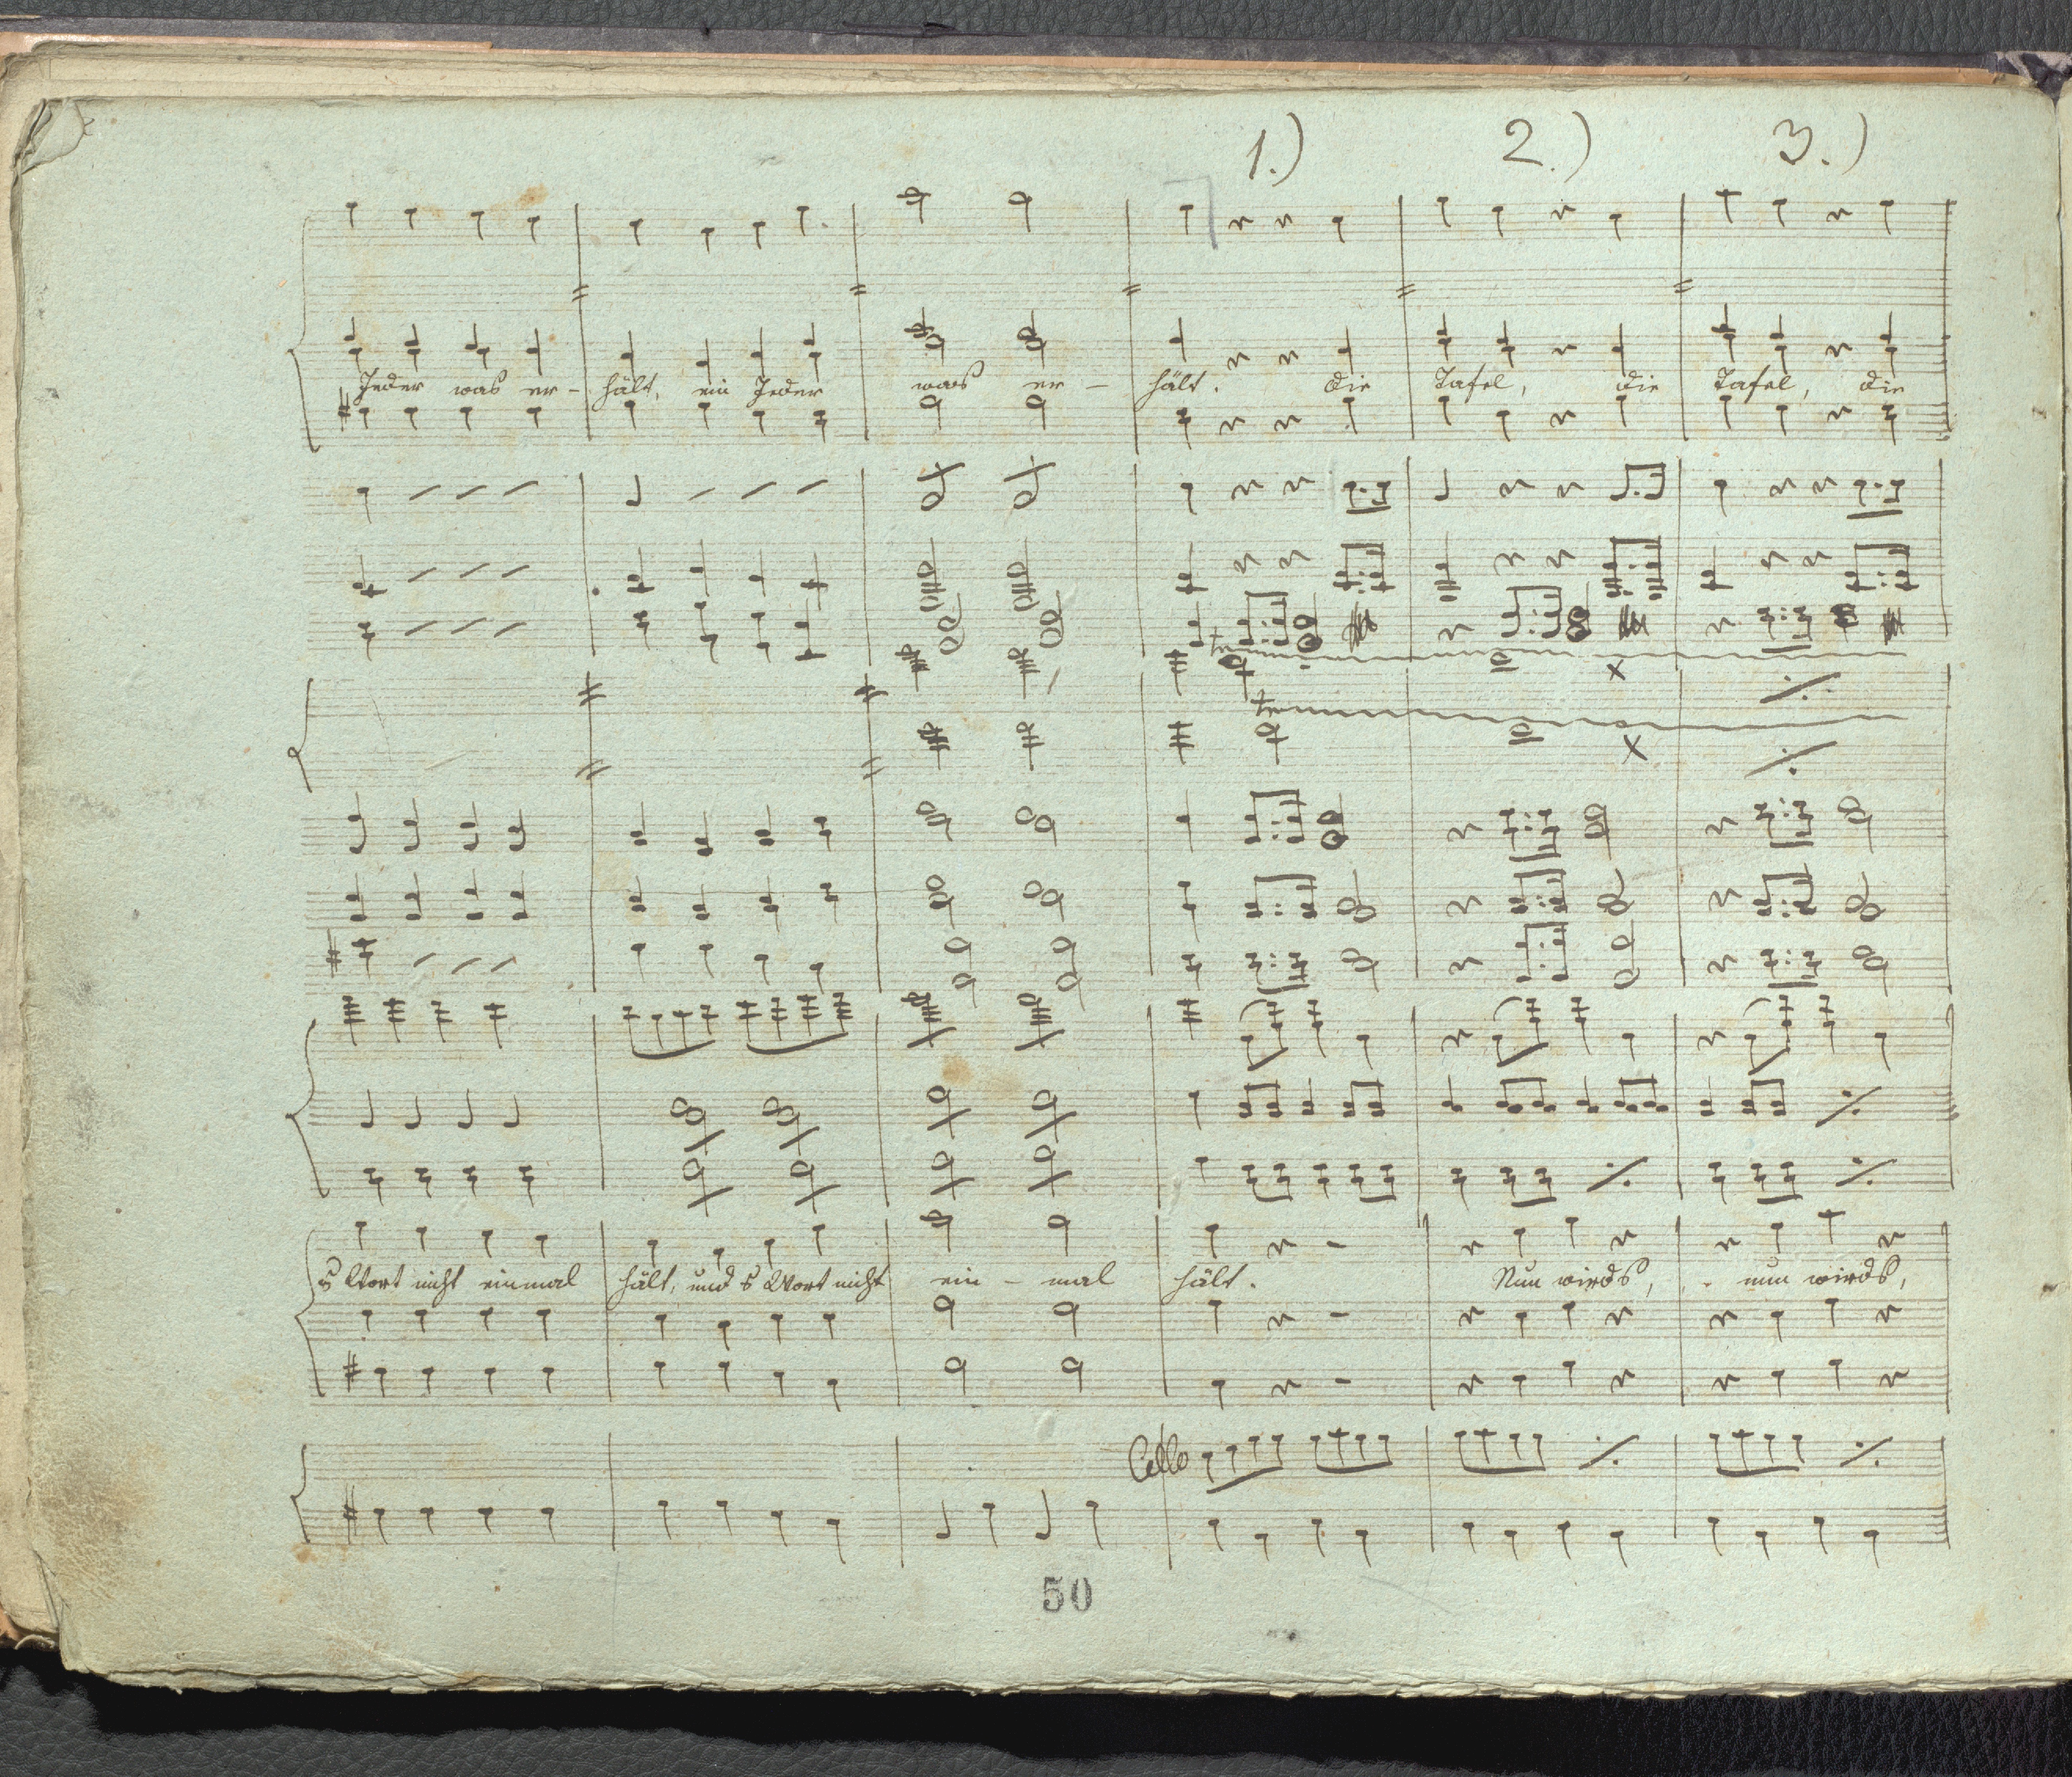 1.) 2.) 3.)
Jeder was er- hält, ein Jeder was er- hält. die Tafel, die Tafel, die
tr
tr
s Wort nicht einmal hält, und s Wort nicht ein-mal hält. Nun wirds, nun wirds,
Cello
50